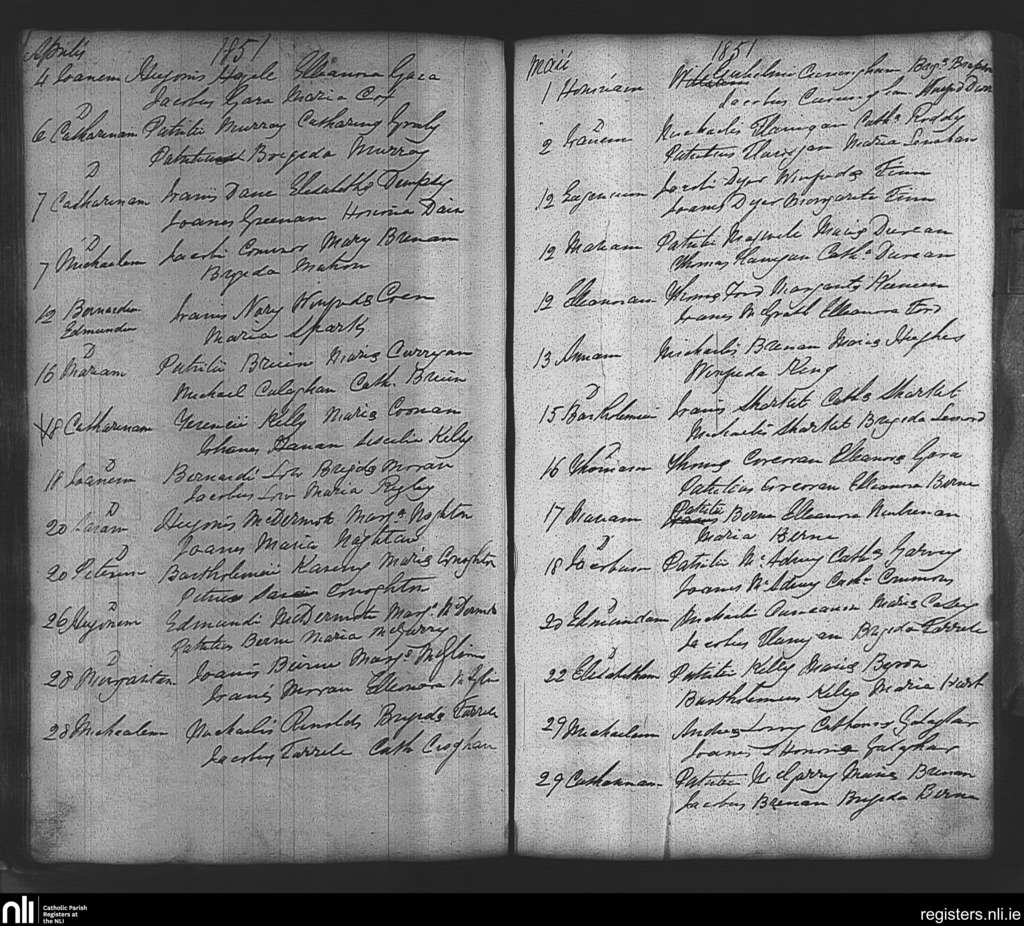 Aprilis 1851
4 Joanem Hugonis Hogle Elleanora Gara
Jacobus Gara Maria Cox
D
6 Catharinam Patritii Murray Catharina Grady
Patritius Brigeda Murray
D
7 Catharinam Joanis Dane Elesabetha Dempsy
Joanes Greenan Honoria Dain
D
7 Michaelem Jacobi Connor Mary Brenan
Brigeda Mahon
12 Bernardum Joanis Nary Winefrida Coen
Edmundum Maria Sparks
D
16 Mariam Patritii Breien Maria Curryan
Michael Calaghan Cath. Breien
18 Catharinam Terencii Kelly Maria Coonan
Kelly
D
18 Joanem Bernardi Low Brigda Moran
Jacobus Low Maria Rigley
D
20 Hugonis McDermott Marga Naghton
Joanes Maria Naghtan
D
20 Peterum Bartholemeii Maria Conoghton
Petrus Conoghton
D
26 Hugonem Edmundi McDermott Marga McDermott
Patritius Beirne Maria McGarry
D
28 Margaritam Joanis Beirne Marga McGlone
Joanes Morran Elleonora
28 Michaelem Michaelis Renolds Brigeda Farrele
Jacobus Farrele Cath Croghan
Maii 1851
1 Honoriam Guhelmi Cuningham
Jacobus Cuningham
D
2 Joanem Michaelis Flanigan Catha Roddy
Patritius Flanigan Maria Lenehan
12 Eugenium Jacobi Dyer Winefrida Finn
Joanes Dyer Margarita Finn
12 Mariam Patritii Maxwele Maria Duncan
Thomas Flanigan Catha Duncan
12 Elleanoram Thoma Ford Margarita
Joanes McGrath Elleanora Ford
13 Annam Michaelis Brenan Maria Hughes
Winefreda King
D
15 Bartholemeum Joanis Sharket Catha Sharket
Michaelis Sharket Brigeda
D
16 Thomam Thoma Corcoran Elleanora Gara
Patritius Corcoran Elleanora Berne
17 Mariam Patritii Berne Elleanora
Maria Berne
D
18 Jacobum Patritii Catha Garvey
Joanes Catha Cummons
D
20 Edmundum Michaelis Maria Casey
Jacobus Flanigan Brigeda Farrele
D
22 Elisabetham Patritii Kelly Maria Byron
Bartholemeus Kelly Maria Hart
29 Michaelem Andrea Lowry Catharina Galaghar
Joanes & Honoria Galaghar
29 Catharinam Patritii McGarry Maria Brenan
Jacobus Brenan Brigeda Berne
nli
Catholic Parish
Registers at
the NLI
registers.nli.ie